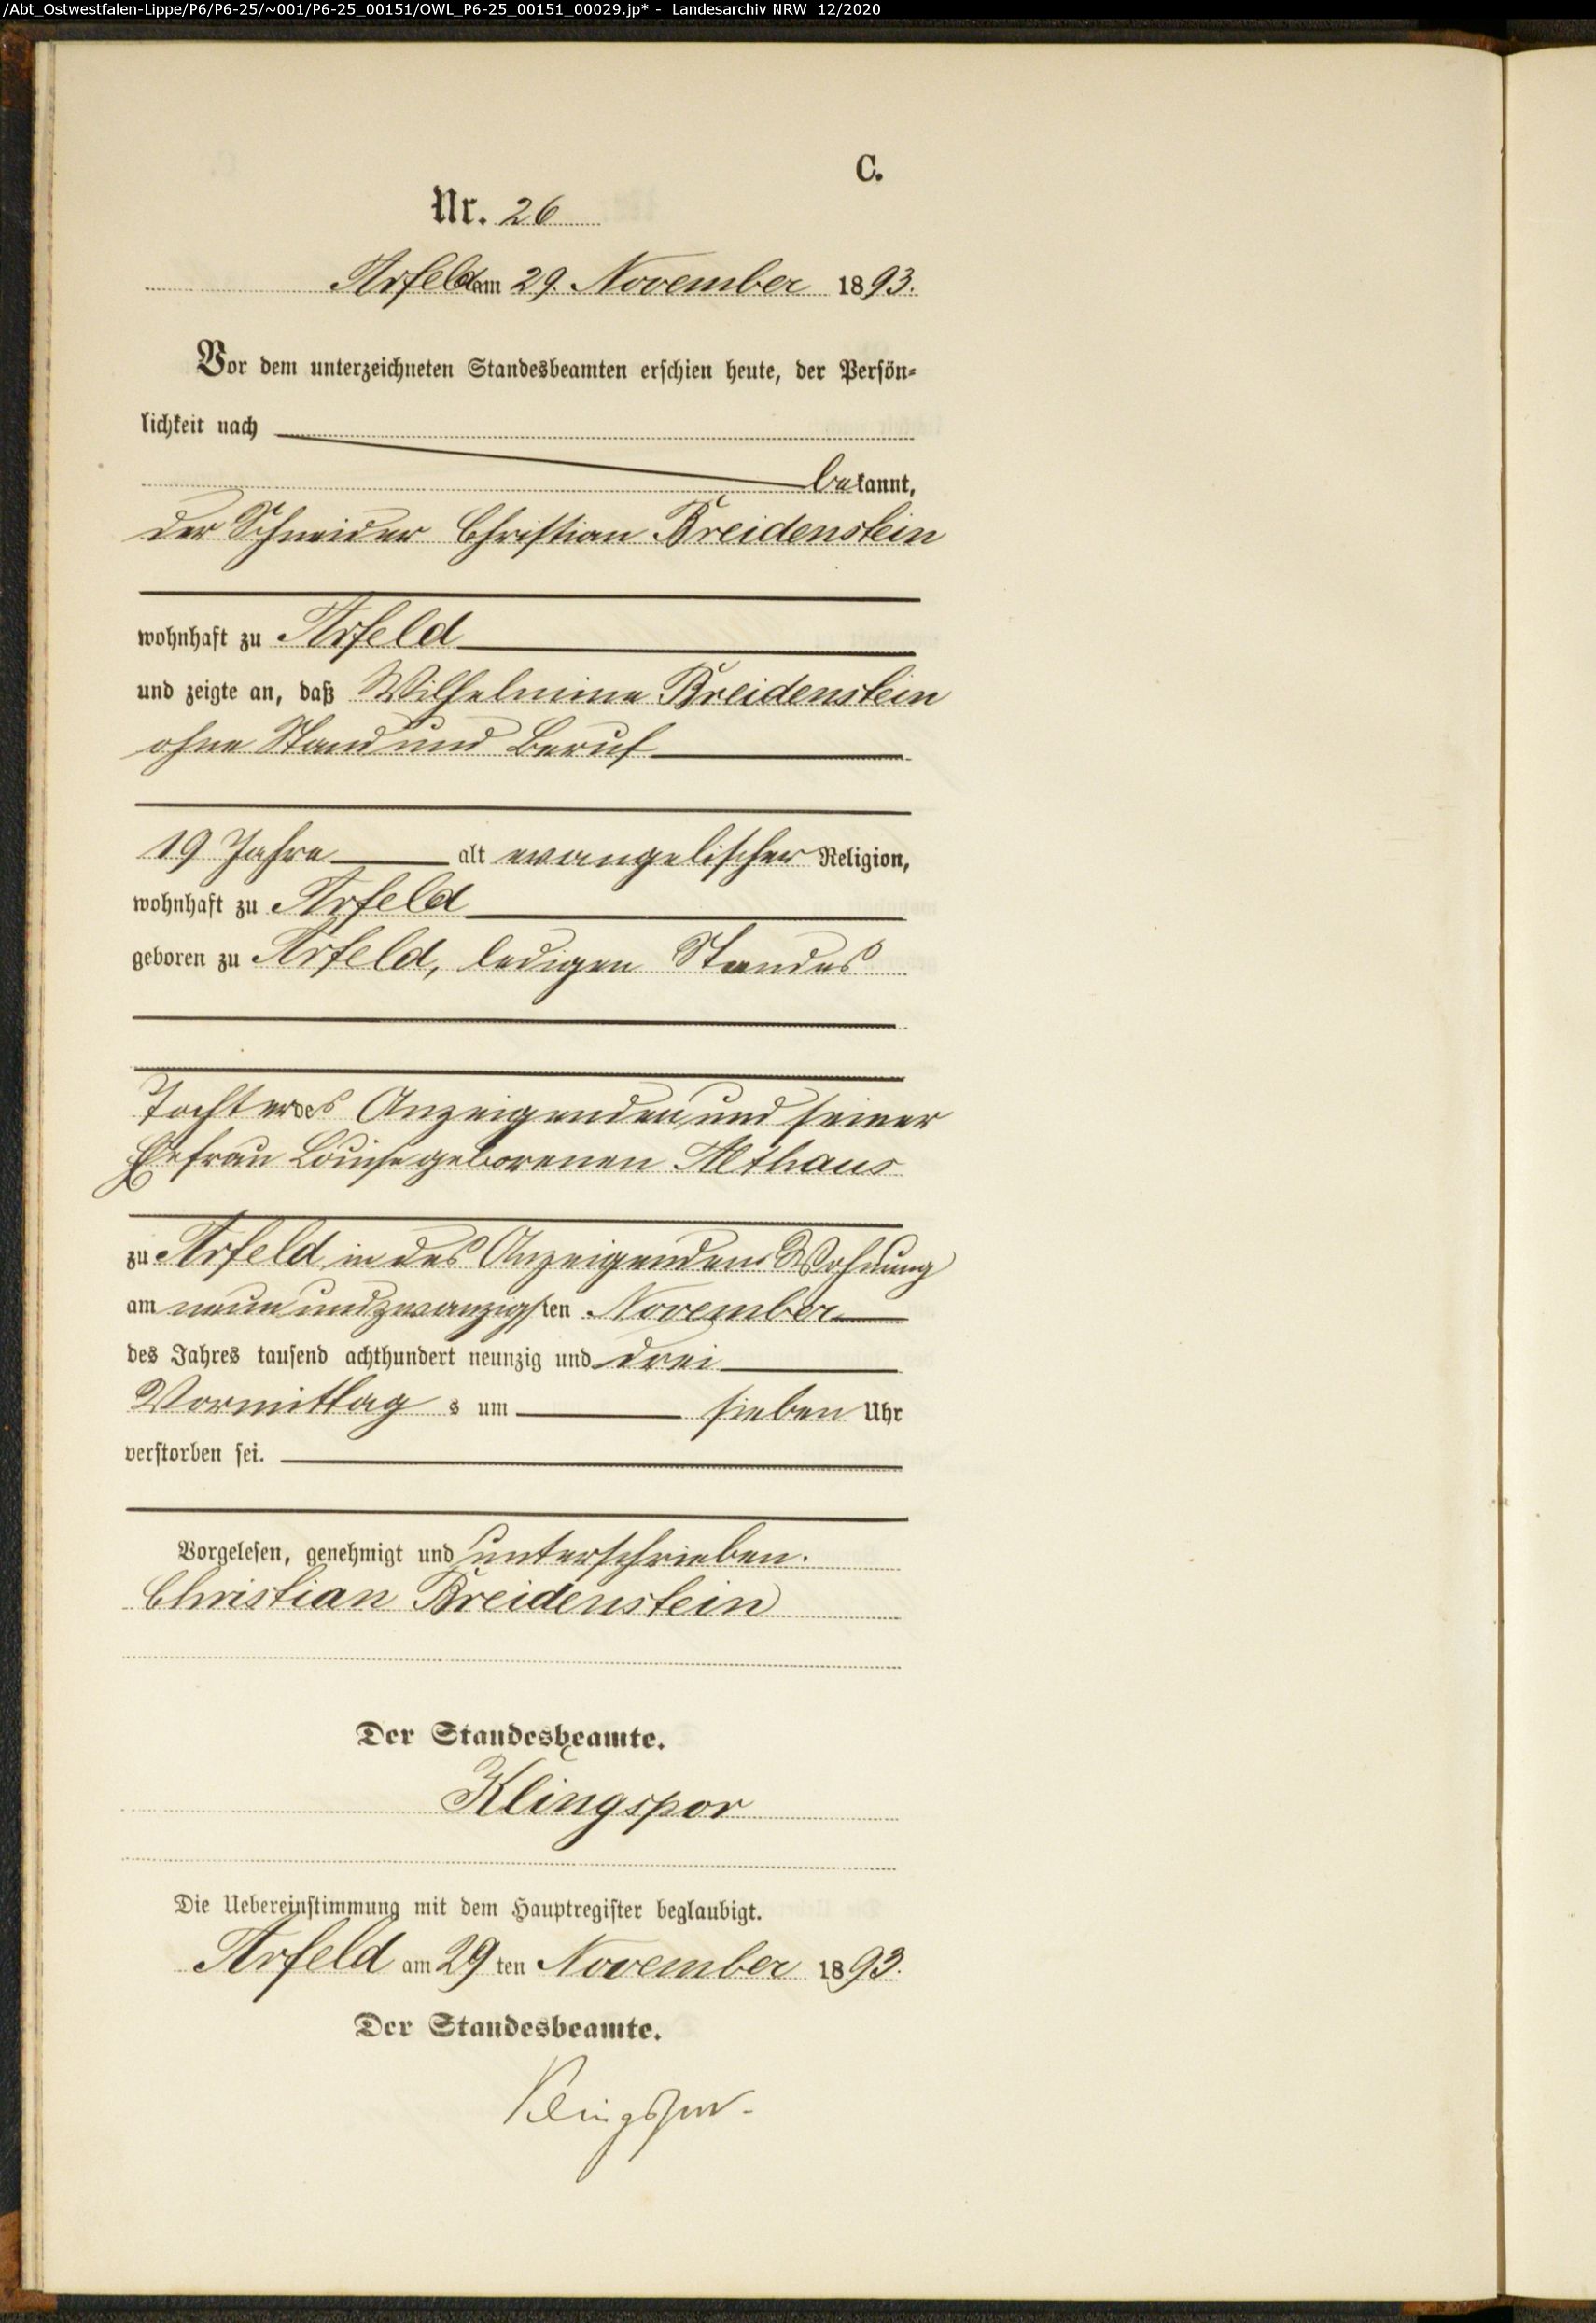 /Abt_Ostwestfalen-Lippe/P6/P6-25/~001/P6-25_00151/OWL_P6-25_00151_00029.jp* - Landesarchiv NRW 12/2020
C.
Nr. 26
Arfeld am 29. November 1893.
Vor dem unterzeichneten Standesbeamten erschien heute, der Persön-
lichkeit nach
bekannt,
der Schneider Christian Breidenstein
wohnhaft zu Arfeld
und zeigte an, daß Wilhelmine Breidenstein
ohne Stand und Beruf
19 Jahre alt evangelischer Religion,
wohnhaft zu Arfeld
geboren zu Arfeld, ledigen Standes
Tochter des Anzeigenden und seiner
Ehefrau Louise geborenen Althaus
zu Arfeld in des Anzeigenden Wohnung
am neun und zwanzigsten November
des Jahres tausend achthundert neunzig und drei
Vormittag s um sieben Uhr
verstorben sei.
Vorgelesen, genehmigt und unterschrieben.
Christian Breidenstein
Der Standesbeamte.
Klingspor
Die Uebereinstimmung mit dem Hauptregister beglaubigt.
Arfeld am 29 ten November 1893.
Der Standesbeamte.
Klingspor.